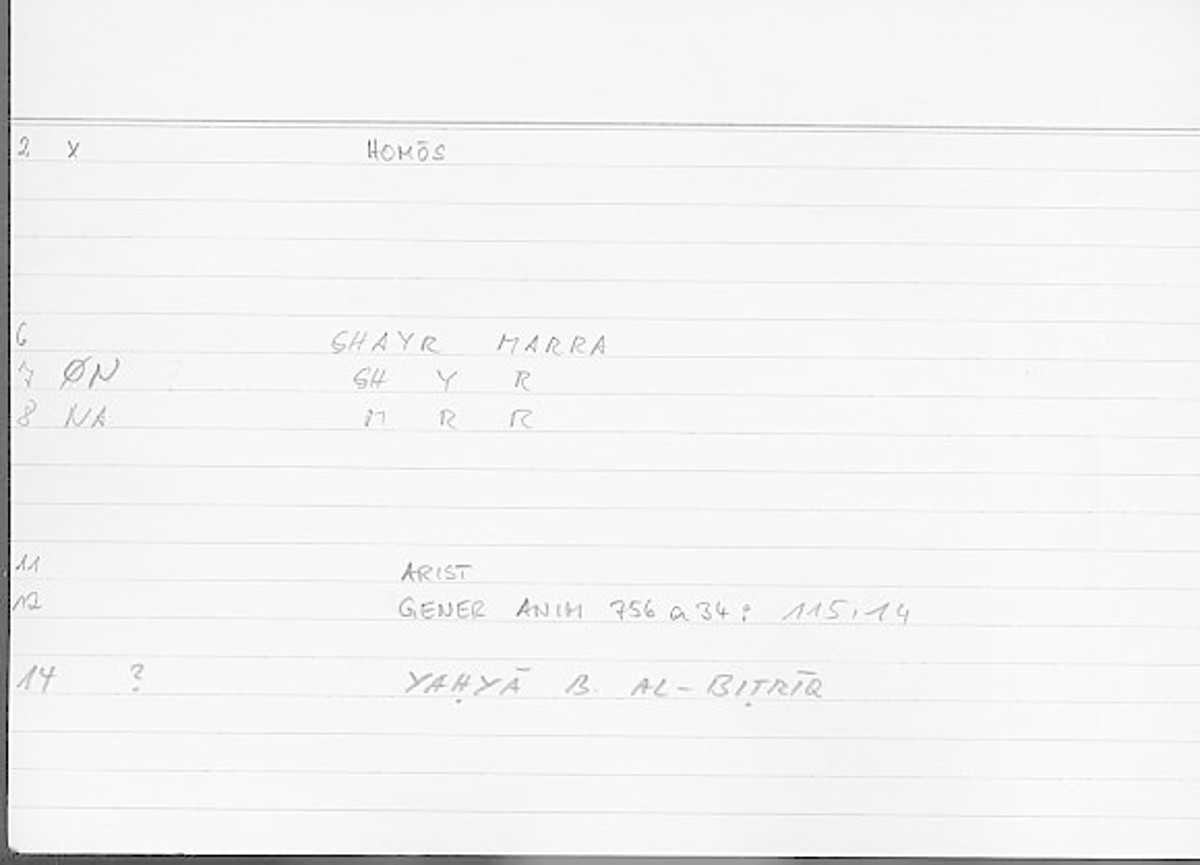 2 X HOMŌS
6 GHAYR MARRA
7 ØN GH Y R
8 NA M R R
11 ARIST
12 GENER ANIM 756 a 34 ; 115,14
14 ? YAḤYĀ B. AL-BIṬRĪQ